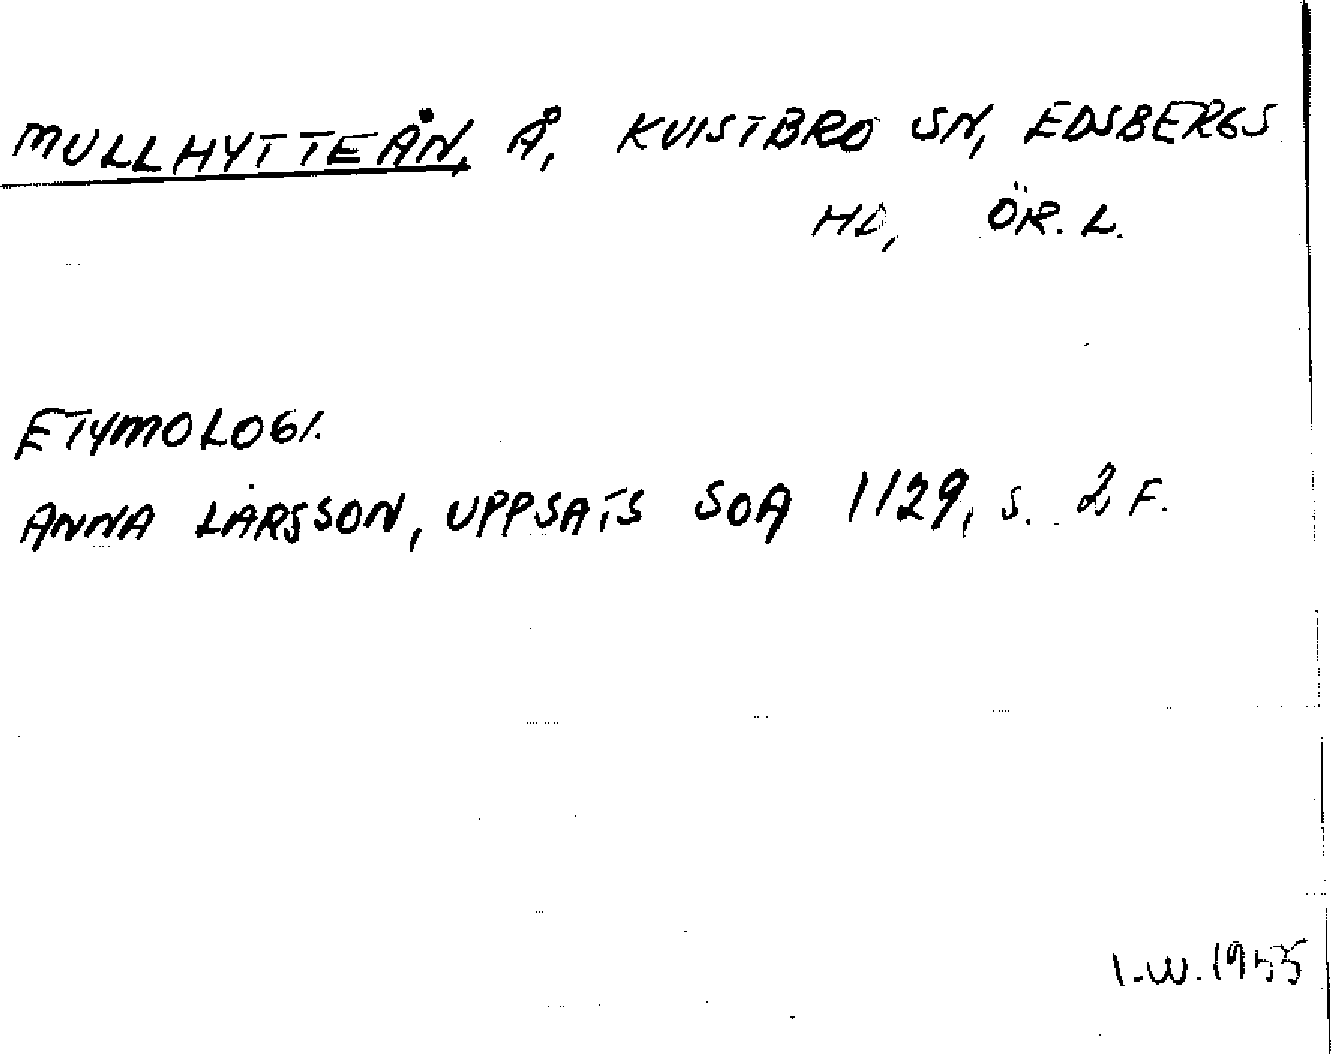 MULLHYTTEÅN, Å, KVISTBRO SN, EDSBERGS
HD, ÖR. L.
ETYMOLOGI.
ANNA LARSSON, UPPSATS SOA 1129, S. 2 F.
I.W. 1955